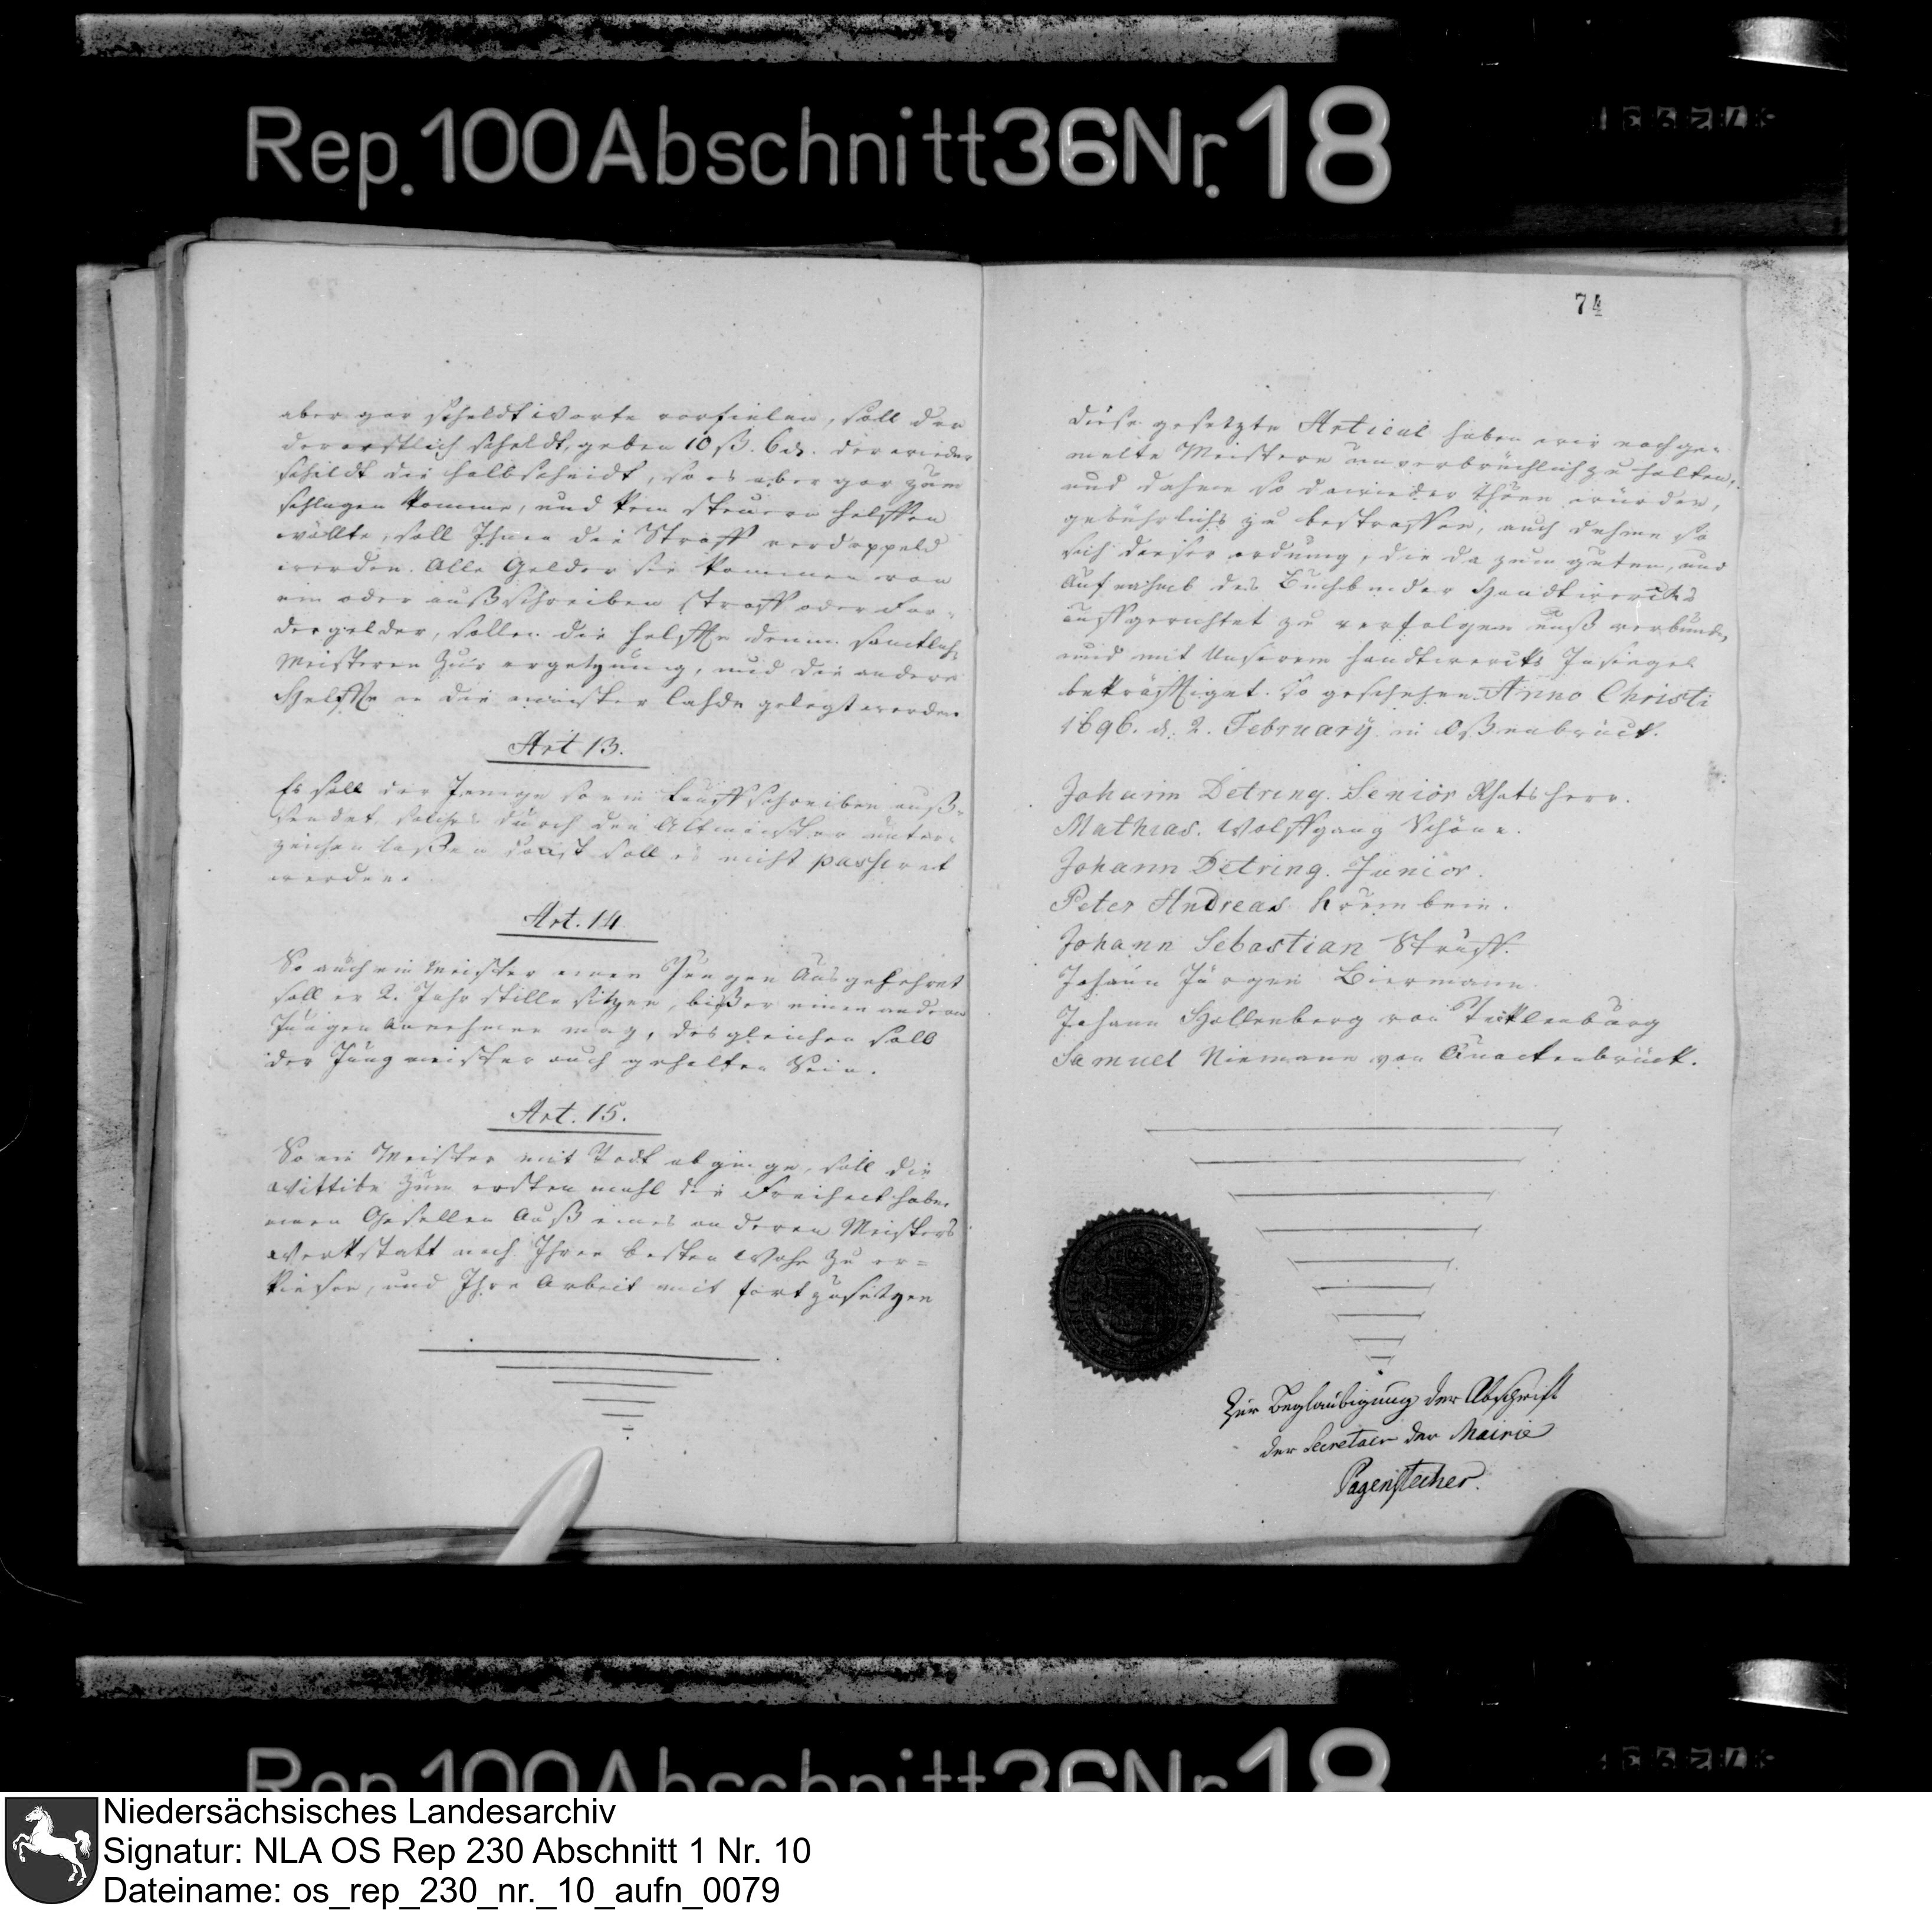 Rep. 100 Abschnitt 36 Nr. 18
aber gar scheldtworte vorfielen, soll der
der erstlich scheldt, geben 10 ß. 6 d. der wieder
schildt die halbscheidt, so es aber gar zum
schlagen komme, und kein steuren helffen
wollte, soll Ihnen die Straff verdoppeld
werden. Alle Gelder sie kommen von
ein oder außschreiben straff oder For-
dergelder, sollen die helffte denen samtlich
Meisteren zur ergetzung, und die andere
Helffte in die meister lahde gelegt werden
Art 13.
Es soll der Jenige so ein lauffschreiben auß-
sendet, solches durch die Altmeister unter-
zeichen laßen sonst soll es nicht passiret
werden.
Art. 14
So auch ein Meister einen Jungen Ausgelehret
soll er 2. Jahr stille sitzen, biß er einen anderen
Jungen annehmen mag, desgleichen soll
der Jungmeister auch gehalten Sein.
Art. 15.
So ein Meister mit Todt abginge, soll die
Wittibe zum ersten mahl die Freiheit haben
einen Gesellen Auß eines anderen Meisters
Werkstatt nach Ihren besten Wahn zu er-
kiesen, und Ihre Arbeit mit fortzusetzen
74
diese gesetzte Articul haben wir nachge-
melte Meistere unverbrüchlich zu halten,
und dahin so dawieder thuen würden,
gebührlichs zu bestraffen, auch dahin so
sich dieser ordnung, die da zum guten, und
Aufnahmb des Buchbinder Handtwercks
auffgerichtet zu verfolgen unß verbunden,
und mit Unserem handtwercks Insiegel
bekräfftiget. So geschehen Anno Christi
1696. d. 2. February in Oßenbrück.
Johann Detring. Senior Rhatsherr.
Mathias. Wolffgang Schöne.
Johann Detring. Junior.
Peter Andreas Krumbein.
Johann Sebastian Struff.
Johann Jürgen Biermann
Johann Hollenberg von Tecklenburg
Samuel Niemann von Quackenbrück.
Zur Beglaubigung der Abschrift
der Secretair der Mairie
Pagenstecher.
Rep. 100 Abschnitt 36 Nr. 18
Niedersächsisches Landesarchiv
Signatur: NLA OS Rep 230 Abschnitt 1 Nr. 10
Dateiname: os_rep_230_nr._10_aufn_0079